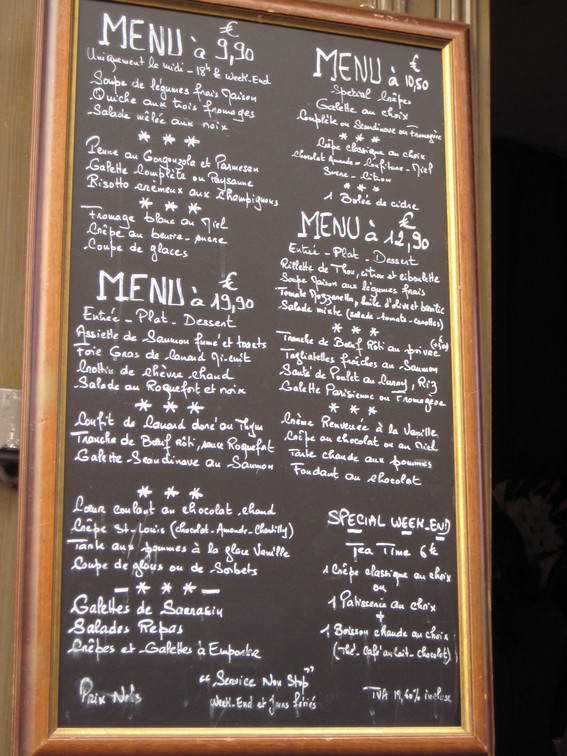 MENU à 9,90 €
Uniquement le midi - 18h & Week-End
Soupe de légumes frais Maison
Quiche aux trois fromages
Salade mêlée aux noix
***
Penne au Gongonzola et Parmesan
Galette complète ou Paysanne
Risotto crémeux aux Champignons
***
Fromage blanc au Miel
Crêpe au beurre-sucre
Coupe de glaces
MENU à 19,90 €
Entrée - Plat - Dessert
Assiette de Saumon fumé et toasts
Foie Gras de Canard Mi-cuit
Crottin de chèvre chaud
Salade au Roquefort et noix
***
Confit de Canard doré au Thym
Tranche de Bœuf Rôti, sauce Roquefort
Galette Scandinave au Saumon
***
Cœur coulant au chocolat chaud
Crêpe St-Louis (chocolat-Amande-Chantilly)
Tarte aux pommes à la glace Vanille
Coupe de glaces ou de Sorbets
- *** -
Galettes de Sarrasin
Salades Repas
Crêpes et Galettes à Emporter
Prix Nets
MENU à 10,50 €
Spécial Crêpes
Galette au choix
Complète ou Scandinave ou Fromagère
***
Crêpe classique au choix
Chocolat Amande - Confiture - Miel
Sucre - Citron
***
1 Bolée de cidre
MENU à 12,90 €
Entrée - Plat - Dessert
Rillette de Thon, citron et ciboulette
Soupe Maison aux légumes frais
Tomate Mozzarella, huile d'olive et basilic
Salade mixte (salade-tomate-carottes)
***
Tranche de Bœuf Rôti au poivre
Tagliatelles fraîches au Saumon
Sauté de Poulet au curry, Riz
Galette Parisienne ou Fromagère
***
Crème Renversée à la Vanille
Crêpe au chocolat ou au Miel
Tarte chaude aux pommes
Fondant au chocolat
SPECIAL WEEK-END
Tea Time 6€
1 Crêpe classique au choix
ou
1 Patisserie au choix
+
1 Boisson chaude au choix
(Thé - Café au lait - chocolat)
"Service Non Stop"
Week-End et Jours fériés
TVA 19,60% incluse